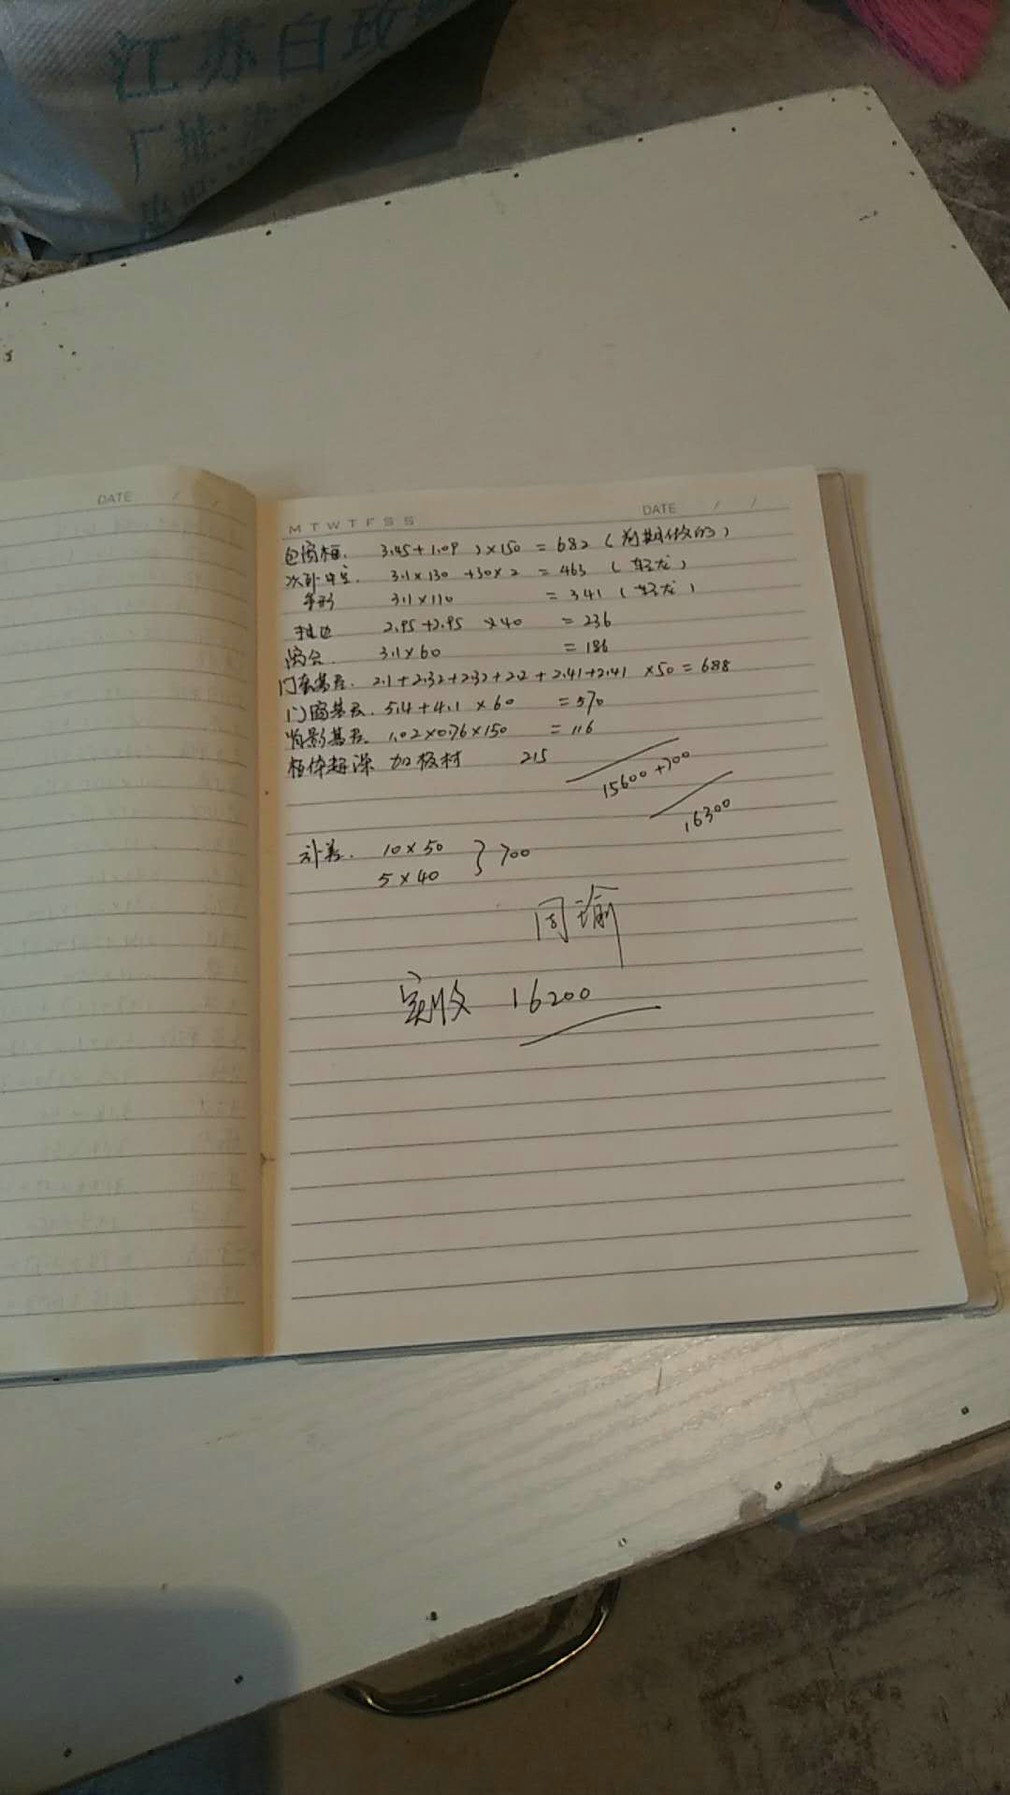 江苏白玫
厂址:
DATE / /
M T W T F S S DATE / /
包窗框. 3.45+1.09 )×150 = 682 (前期做的)
次卧中空. 3.1×130 +30×2 = 463 (轻龙)
3.1×110 = 341 (轻龙)
2.95+2.95 ×40 = 236
窗台. 3.1×60 = 186
门套基层. 2.1+2.32+2.32+2.2+2.41+2.41 ×50 = 688
门窗基层. 5.4+4.1 ×60 = 570
背影基层. 1.02×0.76×150 = 116
柜体超深 加板材 215
15600+700
16300
补差. 10×50 } 700
5×40
周瑜
实收 16200